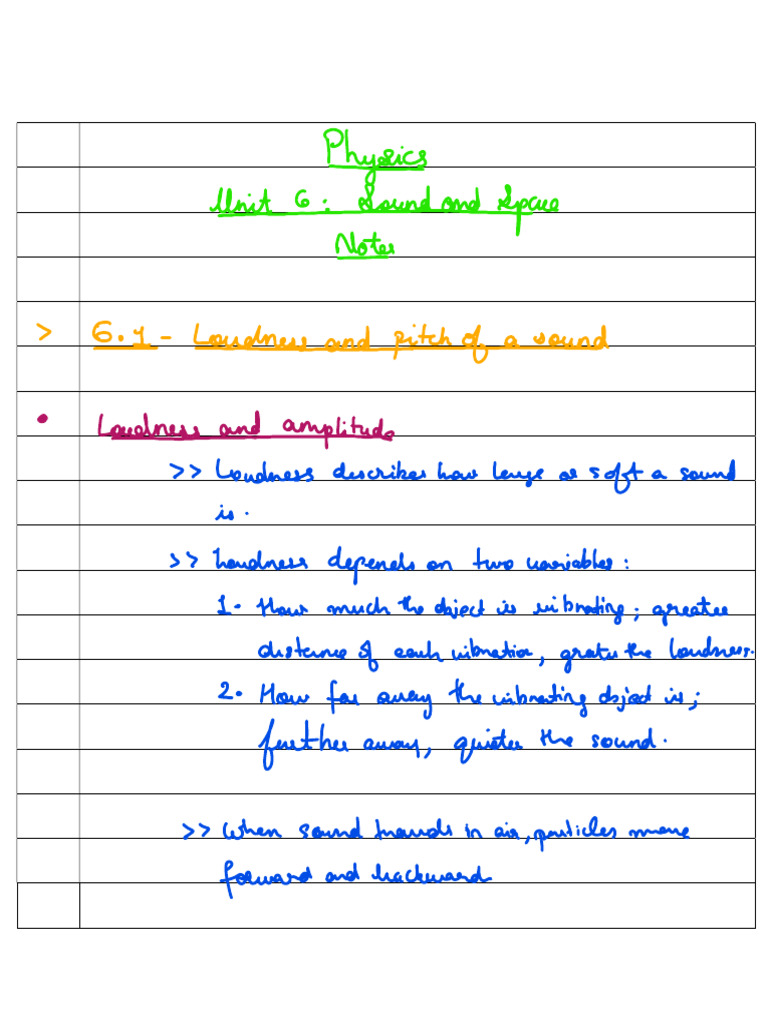 Physics
Unit 6: Sound and Space
Notes
> 6.1 - Loudness and pitch of a sound
• Loudness and amplitude
>> Loudness describes how large or soft a sound
is.
>> Loudness depends on two variables:
1. How much the object is vibrating; greater
distance of each vibration, greater the loudness.
2. How far away the vibrating object is;
further away, quieter the sound.
>> When sound travels in air, particles move
forward and backward